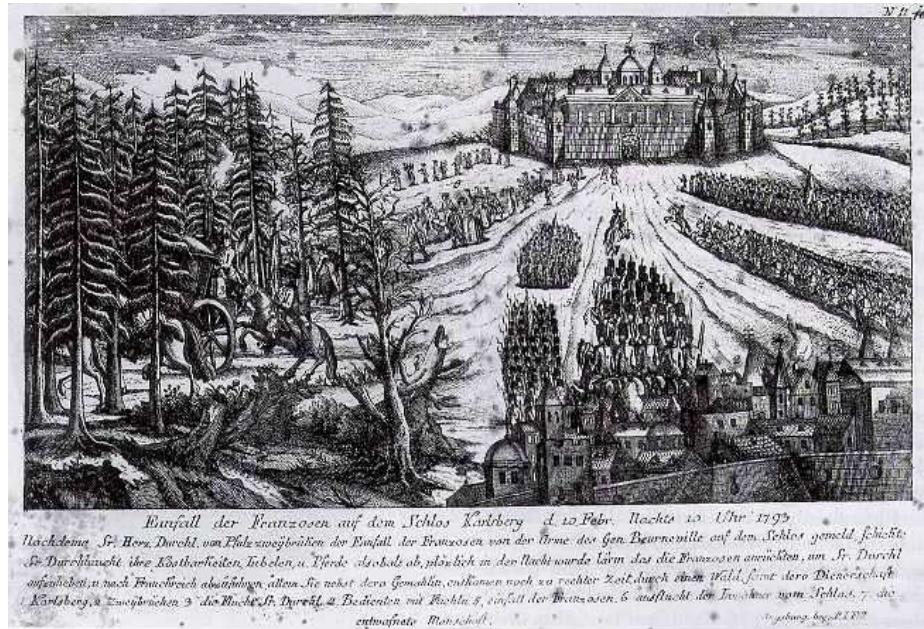 N 11
Einfall der Franzosen auf dem Schlos Karlsberg d. 10 Febr. Nachts 10 Uhr 1793
Nachdeme Sr. Herz. Durchl. von Pfalz zweÿbrüken der Einfall der Franzosen von der Arme des Gen. Beurnonville auf dem Schlos gemeld, schickte
Sr. Durchlaucht ihre Kostbarkeiten, u. Pferde alsobald ab, plözlich in der Nacht wurde lärm das die Franzosen anrückten, um Sr. Durchl
aufzuheben, u. nach Franckreich abzuführen, allein Sie nebst dero Gemahlin, entkamen noch zu rechter Zeit durch einen Wald, samt dero Dienerschaft.
Karlsberg, 2 zweÿbrüken 3 die Flucht Sr. Durchl. 4 Bedienten mit 5, einfall der Franzosen. 6 ausflucht der Inwohner vom Schlos, 7. die
entwafnete Manschaft.
Augsburg beÿ